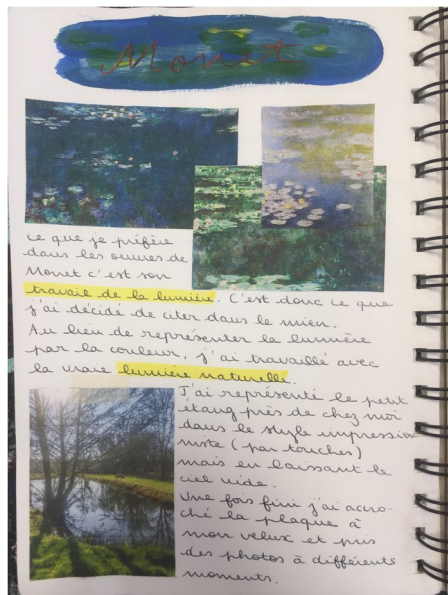 Monet
ce que je préfère
dans les œuvres de
Monet c'est son
travail de la lumière. C'est donc ce que
j'ai décidé de citer dans le mien.
Au lieu de représenter la lumière
par la couleur, j'ai travaillé avec
la vraie lumière naturelle.
J'ai représenté le petit
étang près de chez moi
dans le style impression
niste (par touches)
mais en laissant le
ciel vide.
Une fois fini j'ai accro-
ché la plaque à
mon velux et pris
des photos à différents
moments.